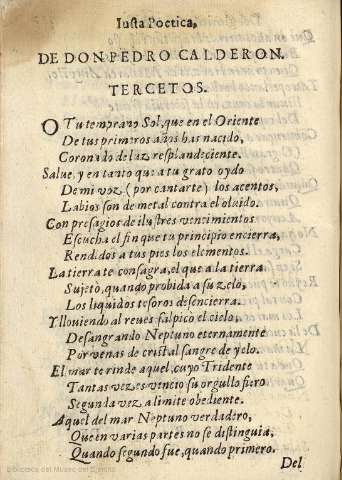 Iusta Poetica,
DE DON PEDRO CALDERON.
TERCETOS.
O Tu temprano Sol, que en el Oriente
De tus primeros años has nacido,
Coronado de laz resplandeciente.
Salue, y en tanto que a tu grato oydo
De mi voz (por cantarte) los acentos,
Labios son de metal contra el oluido.
Con presagios de ilustres vencimientos
Escucha el fin que tu principio encierra,
Rendidos a tus pies los elementos.
La tierra te consagra, el que a la tierra
Sujetò, quando prohibida a su zelo,
Los liquidos tesoros desencierra.
Y llouiendo al reues salpicò el cielo,
Desangrando Neptuno eternamente
Por venas de cristal sangre de yelo.
El mar te rinde aquel, cuyo Tridente
Tantas vezes vencio su orgullo fiero
Segunda vez a limite obediente.
Aquel del mar Neptuno verdadero,
Que en varias partes no se distinguia,
Quando segundo fue, quando primero.
Del
Biblioteca del Museo del Ejército